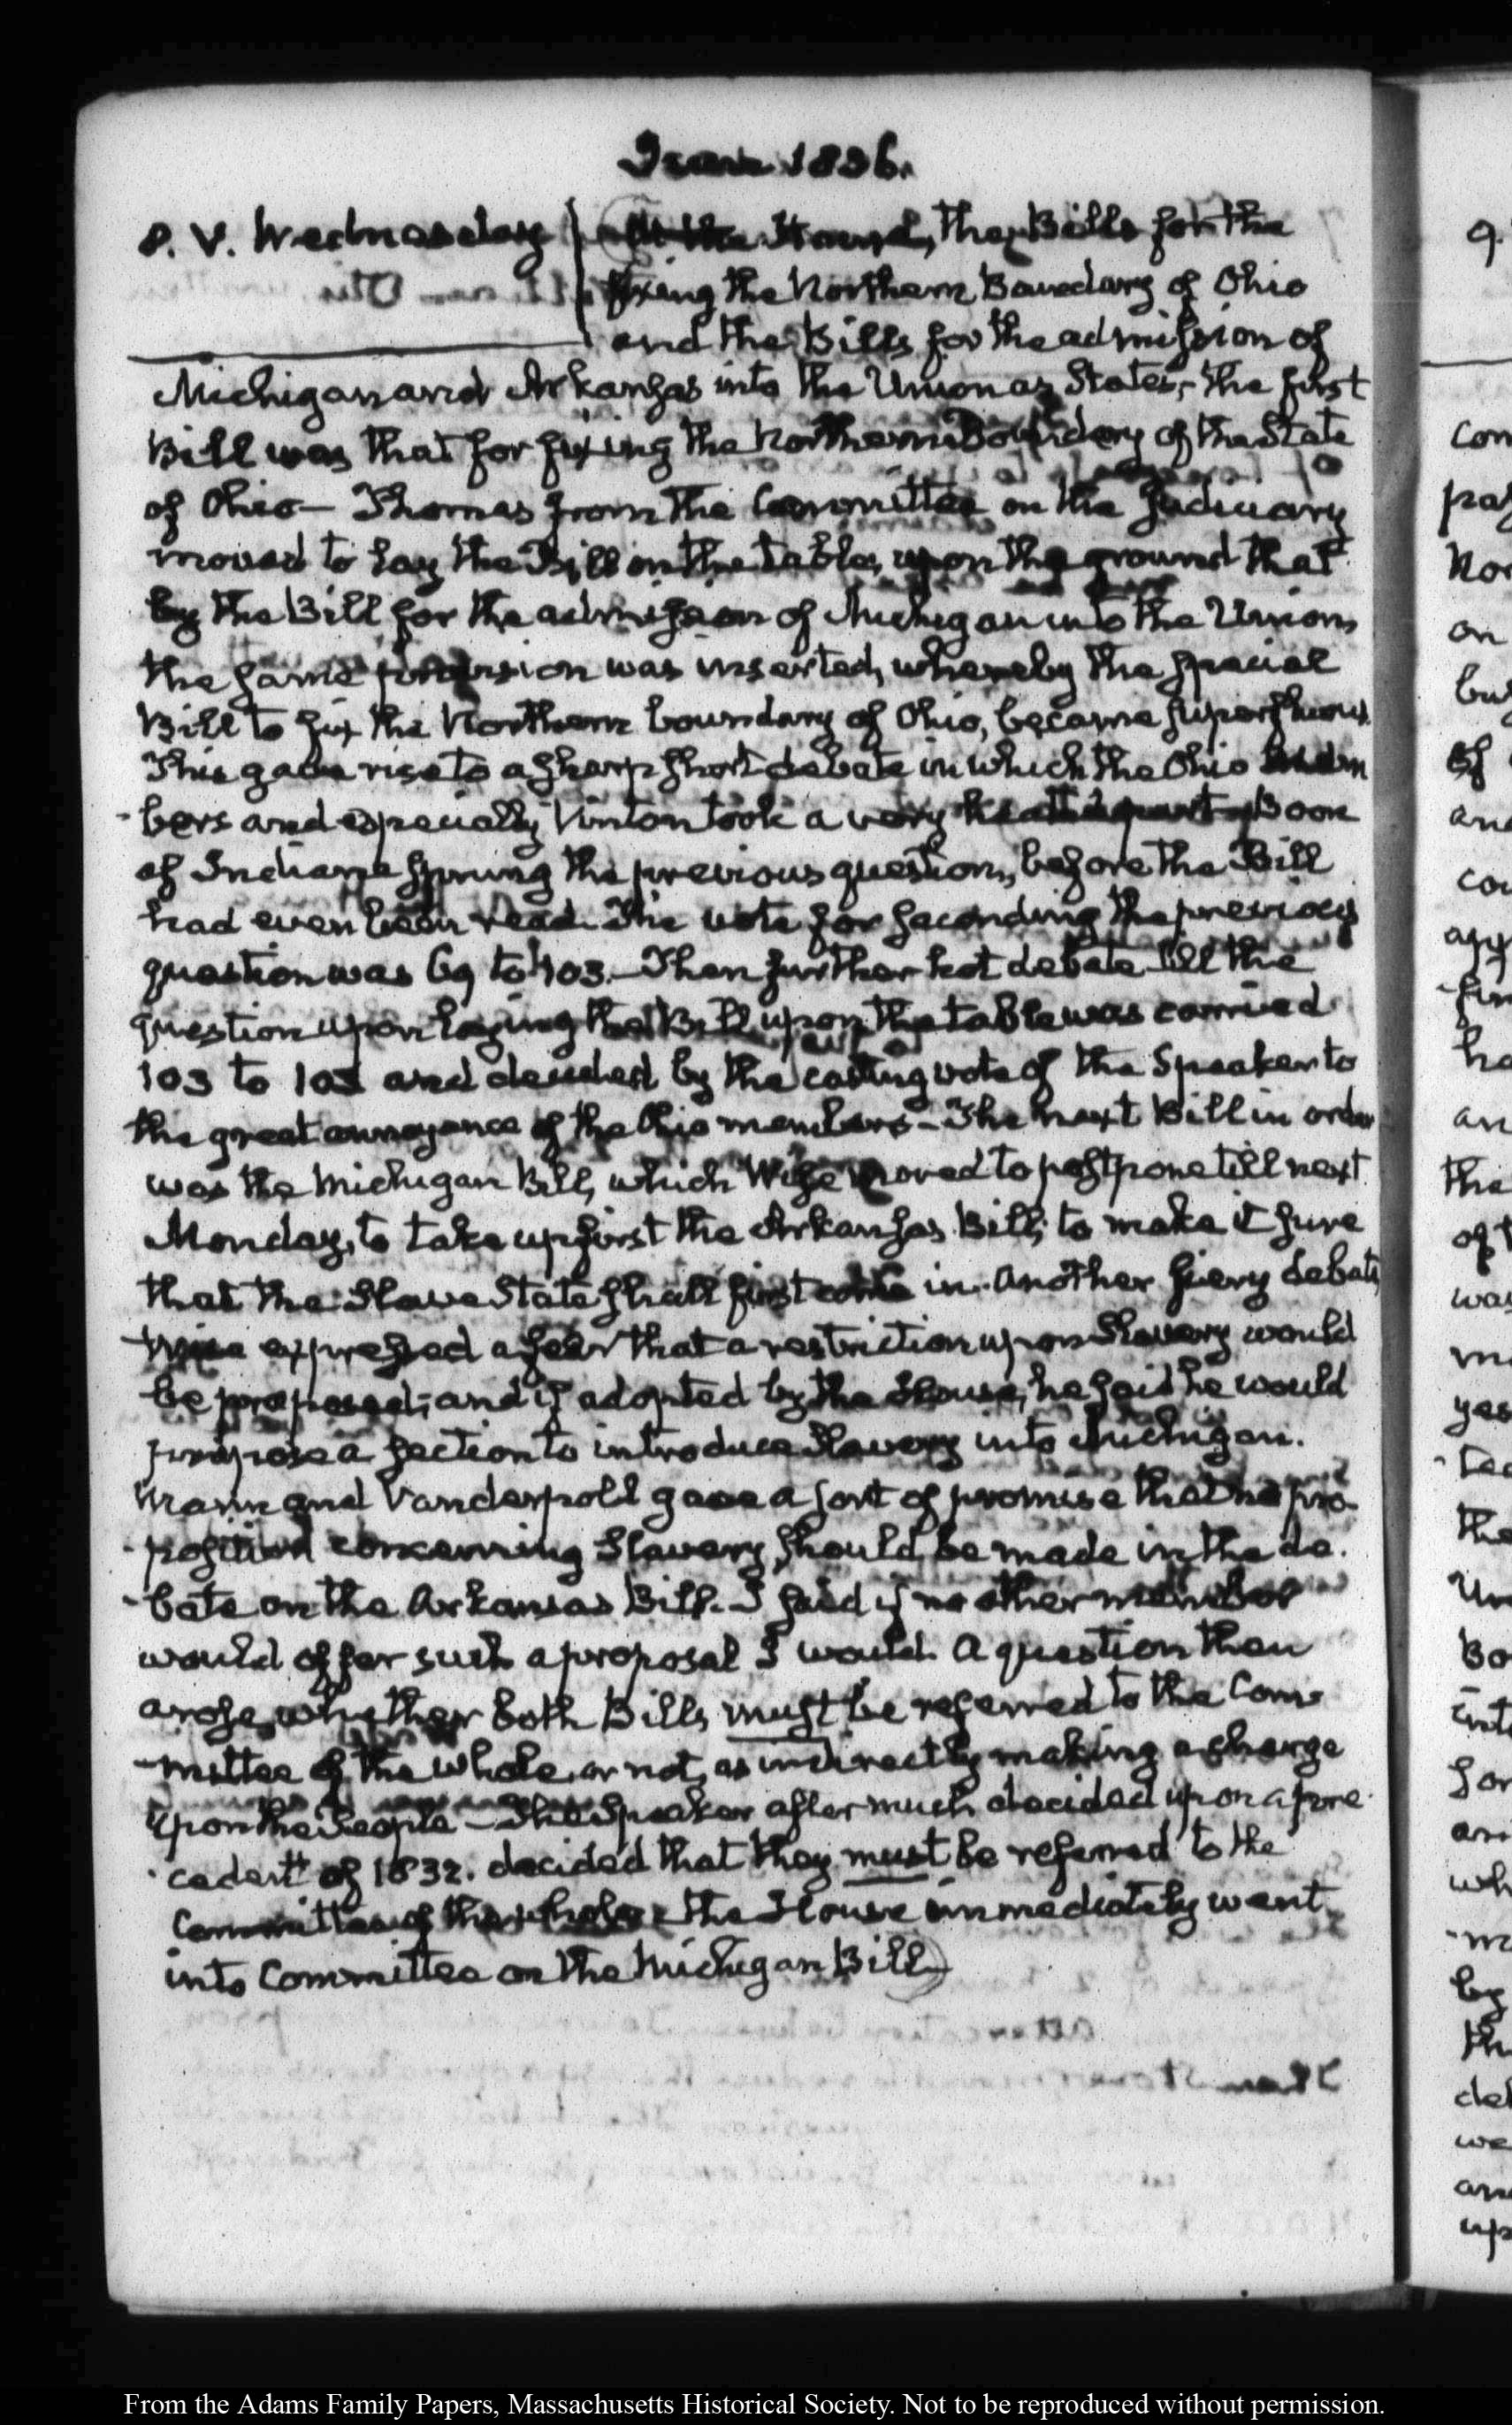 June 1836.
8. V. Wednesday At the House, the Bills for the
fixing the Northern Boundary of Ohio
and the Bills for the admission of
Michigan and Arkansas into the Union as States, the first
Bill was that for fixing the Northern Boundary of the State
of Ohio— Thomas from the Committee on the Judiciary
moved to lay the Bill on the table, upon the ground that
by the Bill for the admission of Michigan into the Union,
the same provision was inserted, whereby the special
Bill to fix the Northern boundary of Ohio, became superfluous
This gave rise to a sharp short debate in which the Ohio mem
-bers and especially Vinton took a very part, Boon
of Indiana sprung the previous question, before the Bill
had even been read. The vote for seconding the previous
question was 69 to 103.— Then further hot debate till the
question upon laying the Bill upon the table was carried
103 to 103 and decided by the casting vote of the Speaker to
the great annoyance of the Ohio members— The next Bill in order
was the Michigan Bill, which Wise moved to postpone till next
Monday, to take up first the Arkansas Bill, to make it sure
that the Slave State shall first come in. Another fiery debate
expressed a fear that a restriction upon Slavery would
be proposed; and if adopted by the House, he said he would
propose a section to introduce Slavery into Michigan.
Mann and Vanderpoll gave a sort of promise that no pro-
-position concerning Slavery, should be made in the de-
-bate on the Arkansas Bill. I said if no other member
would offer such a proposal I would. A question then
arose, whether both Bills must be referred to the Com-
-mittee of the whole, or not, as indirectly making a charge
upon the People— The Speaker after much decided upon a pre-
-cedent of 1832. decided that they must be referred to the
Committee of the whole & the House immediately went
into Committee on the Michigan Bill
9.
From the Adams Family Papers, Massachusetts Historical Society. Not to be reproduced without permission.